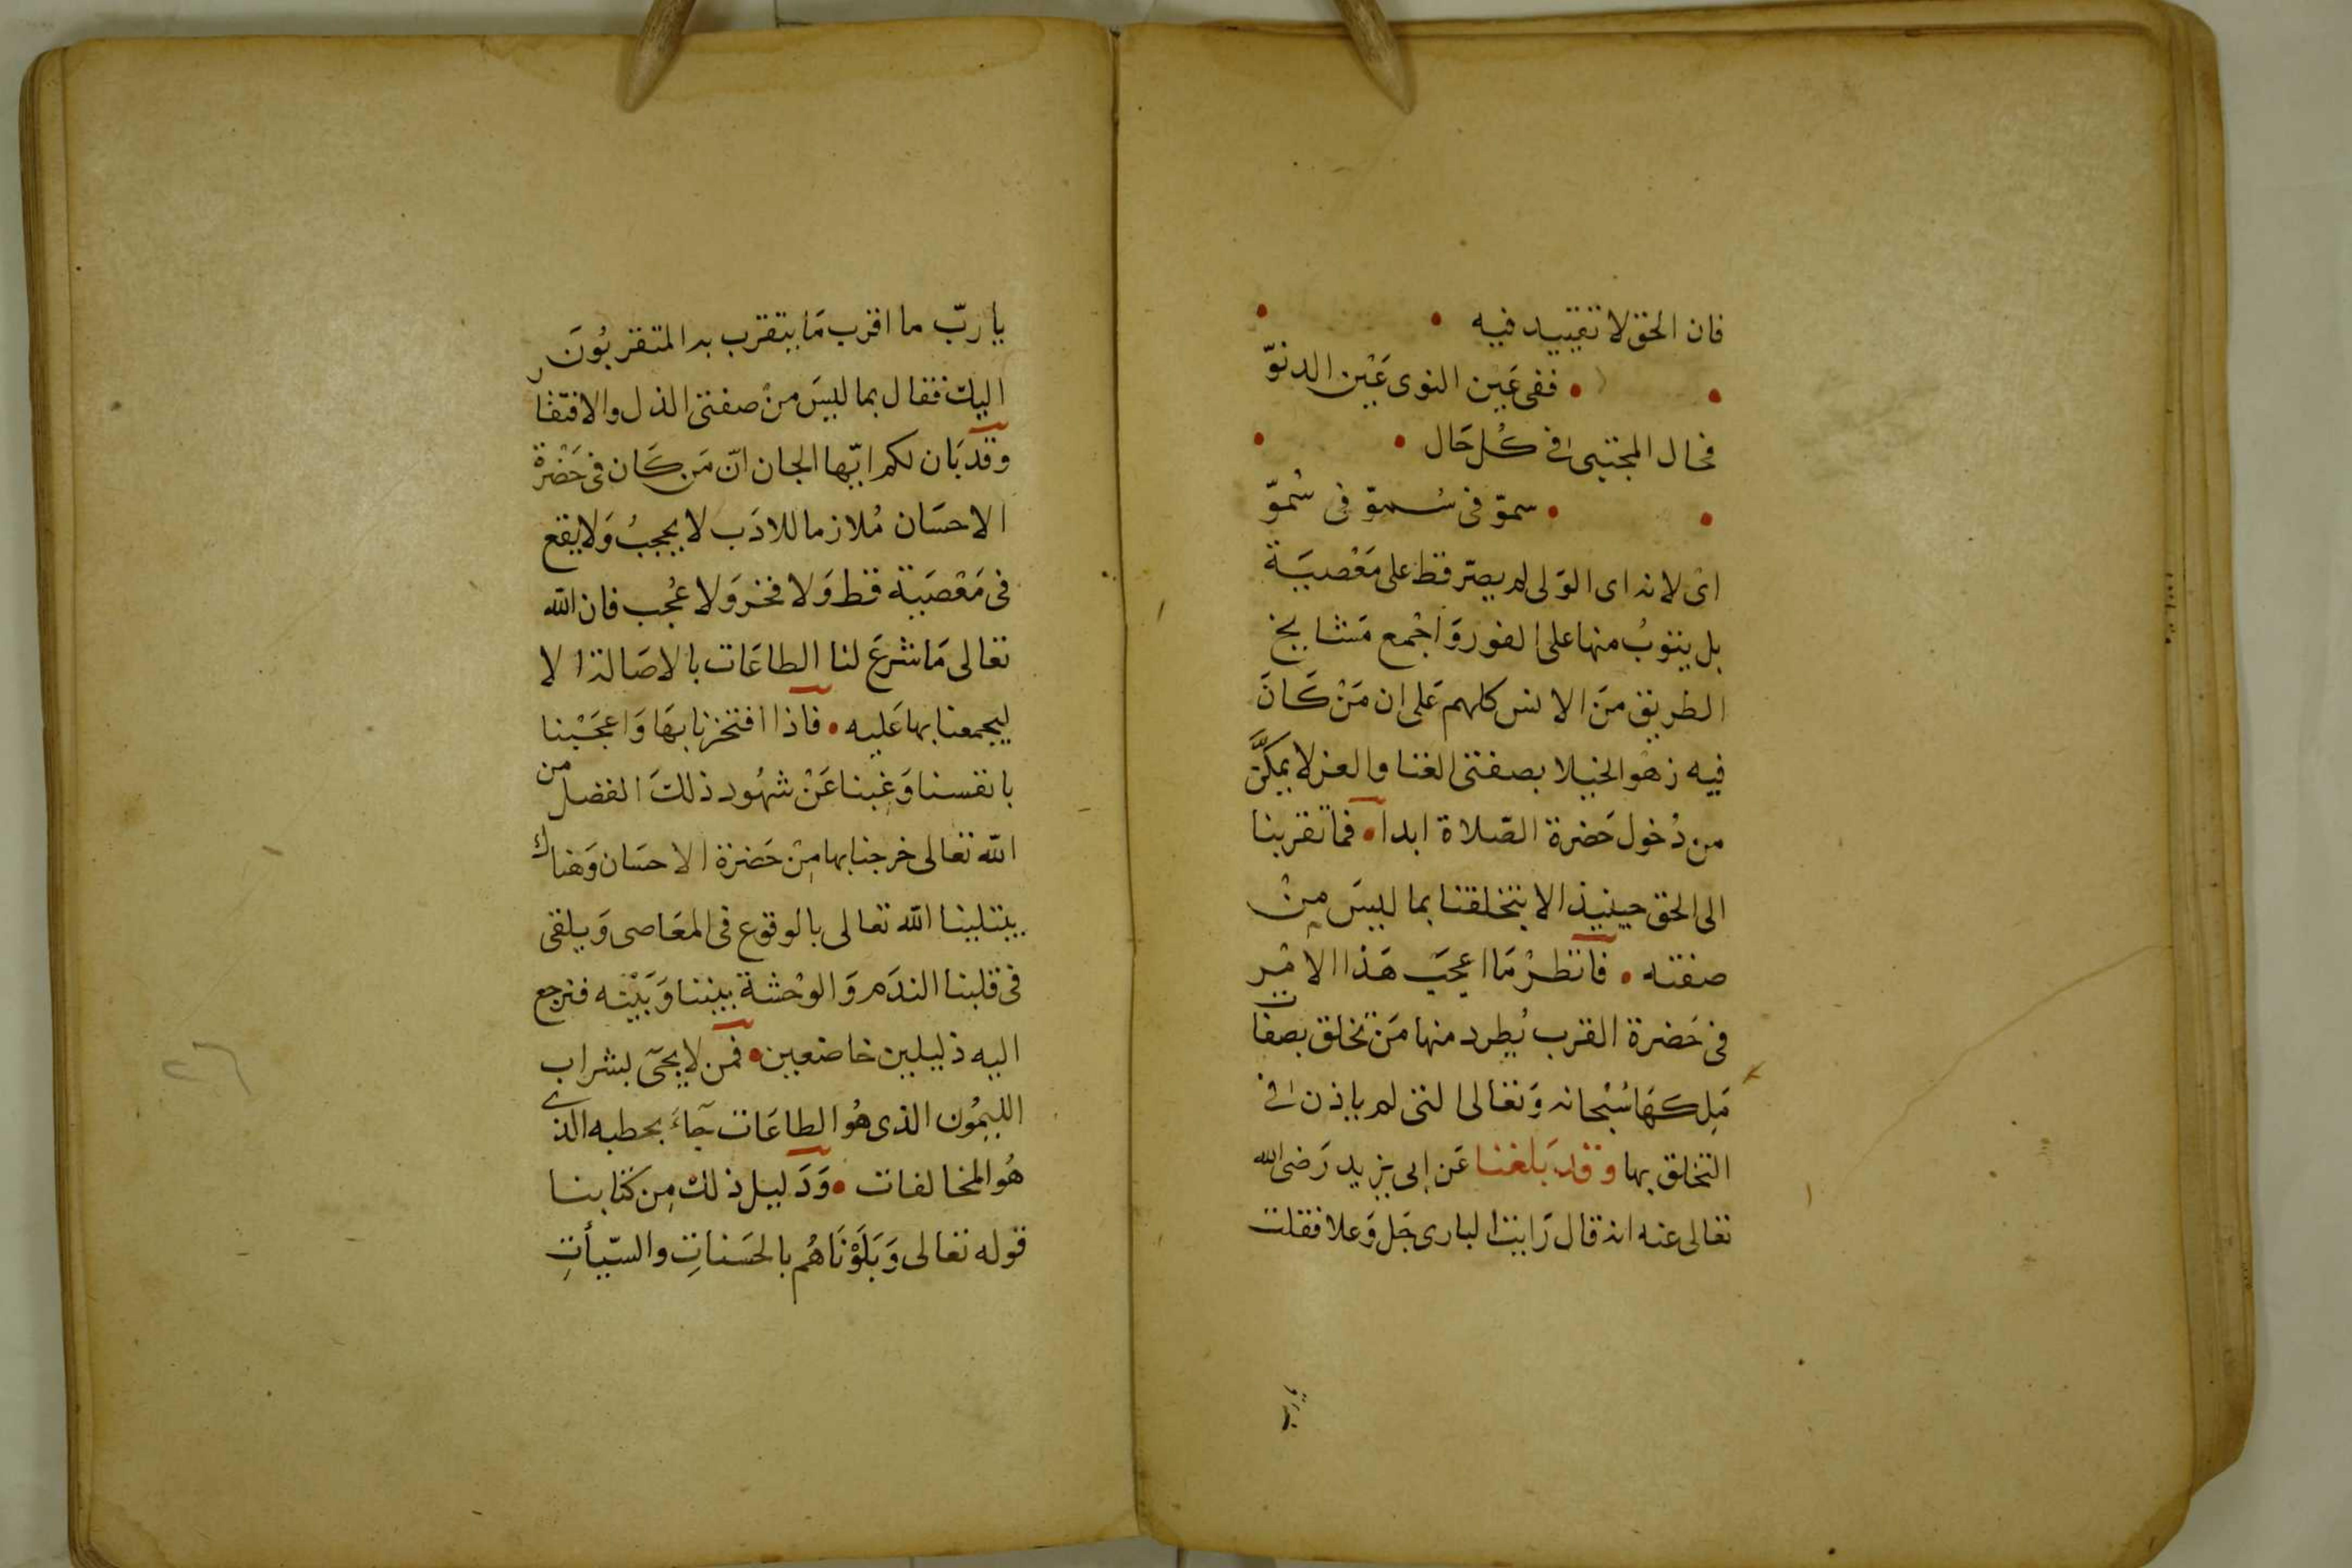 فان الحق لا تقييد فيه •
• ففى عَين النوى عَيْن الدنوّ •
فحال المجتبى فى كُل حَال •
• سموّ فى سُموّ فى سُموّ •
اى لانه اى الوَلى لم يصرّ قط على مَعْصيَة
بل يتوبُ منها على الفور وَاجْمع مَشايخ
الطريق مَن الانس كلهم عَلى ان مَنْ كَانَ
فيه زهو الخيلا بصفتى الغنا والعز لا يمكَّن
من دُخول حَضرة الصّلاة ابدا • فما تقربنا
الى الحق حينيذ الا بتخلقنا بما ليسَ مِنْ
صفته • فانظرْ مَا اعجبَ هَذا الامْر
فى حَضرة القرب يُطرد منها مَن تخلق بصفات
مَلِكهَا سُبْحانه وَتعالى التى لم ياذن فى
التخلق بها وقد بَلغنا عَن ابى يزيد رَضى الله
تعالى عنه انه قال رَايت البارى جَل وَعلا فقلت
يا رب
يا ربّ ما اقرب مَا يتقرب به المتقربُونَ
اليك فقال بما ليسَ منْ صفتى الذل والافتقار
وقد بَان لكم ايّها الجان انّ مَن كَان فى حَضْرة
الاحسَان مُلازما للادَب لا يحجبُ وَلا يقع
فى مَعْصَيَة قط وَلا فخر وَلا عُجب فان الله
تعالى مَا شرعَ لنا الطاعَات بالاصَالة الا
ليجمعنا بها عَليه • فاذا افتخرنا بهَا وَاعجَبْنا
بانفسنا وَغِبنا عَنْ شهُود ذلكَ الفضل من
الله تعالى خرجنا بها مِنْ حَضرة الاحسَان وَهناك
يبتلينا الله تعالى بالوقوع فى المعَاصى وَيلقى
فى قلبنا الندَم وَالوحْشة بيننا وَبَيْنه فنرجع
اليه ذليلين خاضعين • فمَن لا يجَىٓ بشراب
الليمُون الذى هُو الطاعَات جَآءَ بحطبه الذى
هُو المخالفات • وَدَليل ذلك مِن كتابنا
قوله تعالى وَبَلَوْنَاهُم بالحَسَناتِ والسّيأتِ
٢٦